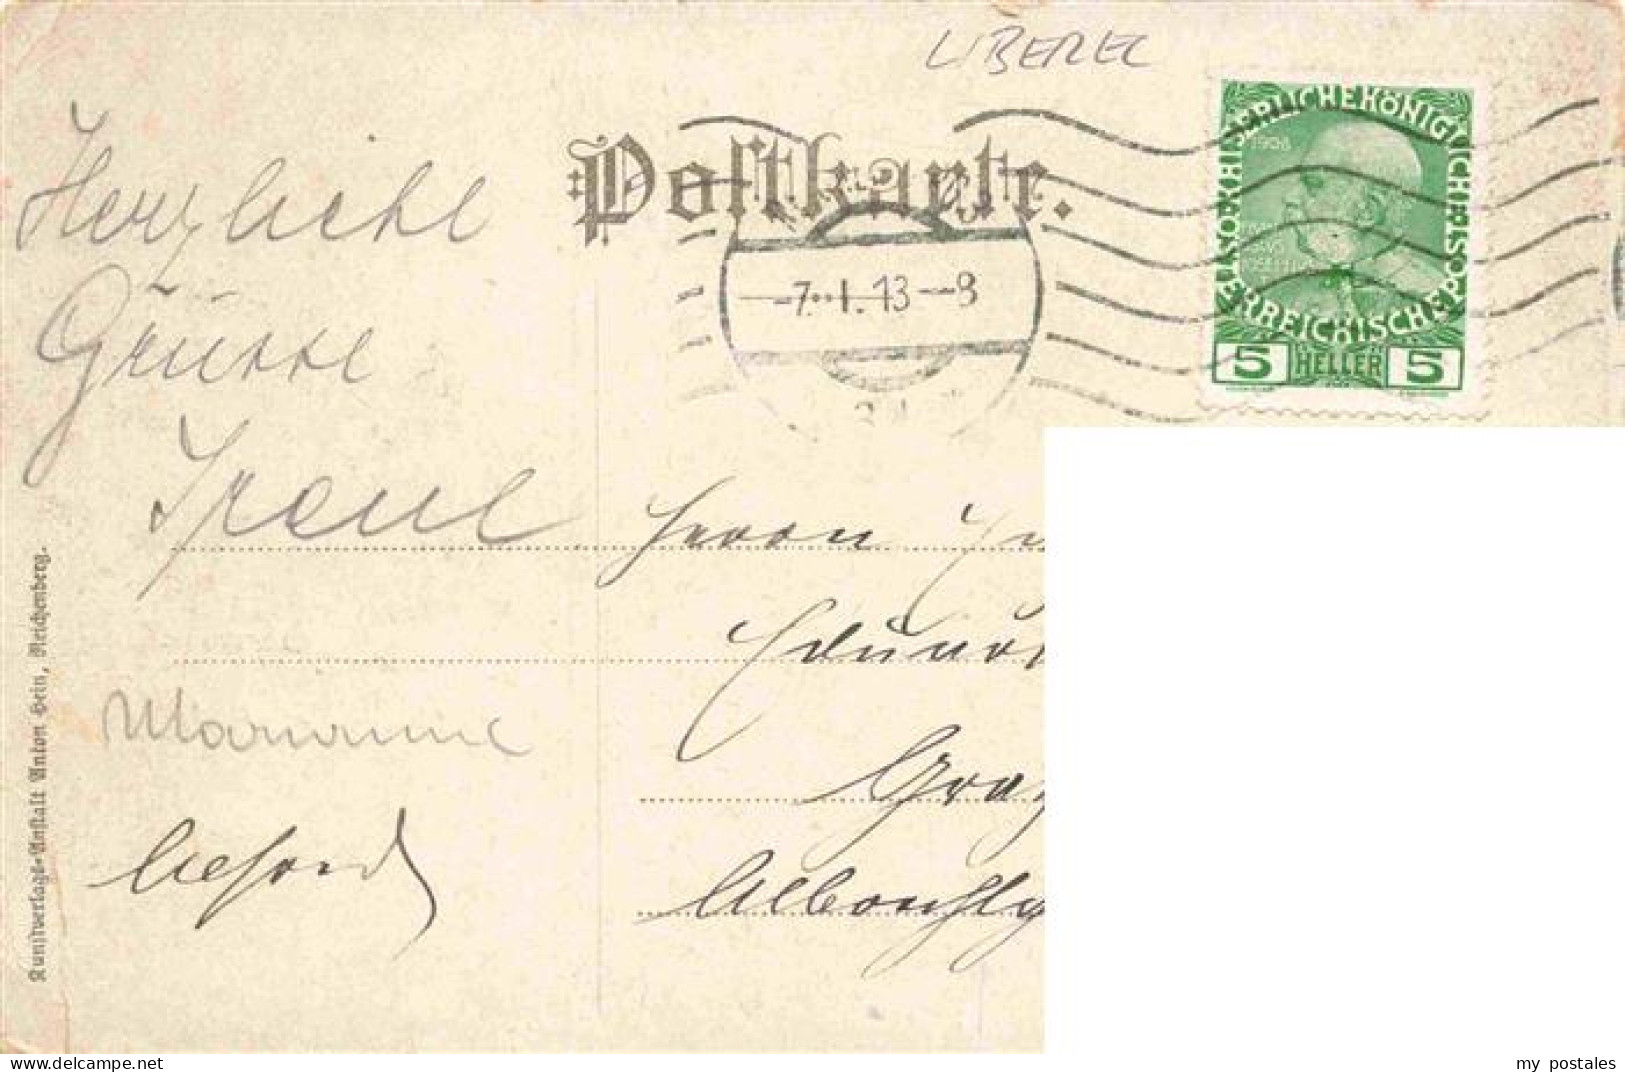 LIBEREC
Postkarte.
-7.-I.13-8
KAISERLICHE KÖNIGLICHE ÖSTERREICHISCHE POST
1908
5 HELLER 5
Herzliche
Grüsse
Irene
Marianne
Herrn
Eduard
Graz
Kunstverlags-Anstalt Anton Hein, Reichenberg.
my postales